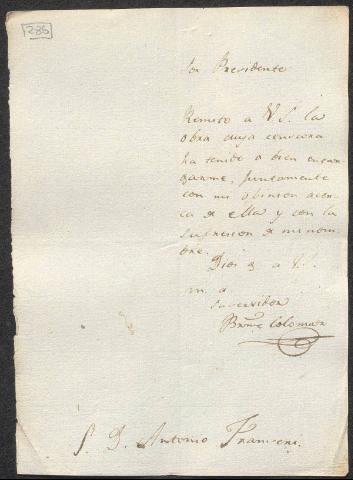 286
Sor Presidente
Remito a V. S. la
obra cuya censura
ha tenido a bien encar
garme, juntamente
con mi opinion acer
ca de ella y con la
supresion de mi nom
bre.
Dios g. a V. S.
m. a.
su servidor
S. D. Antonio